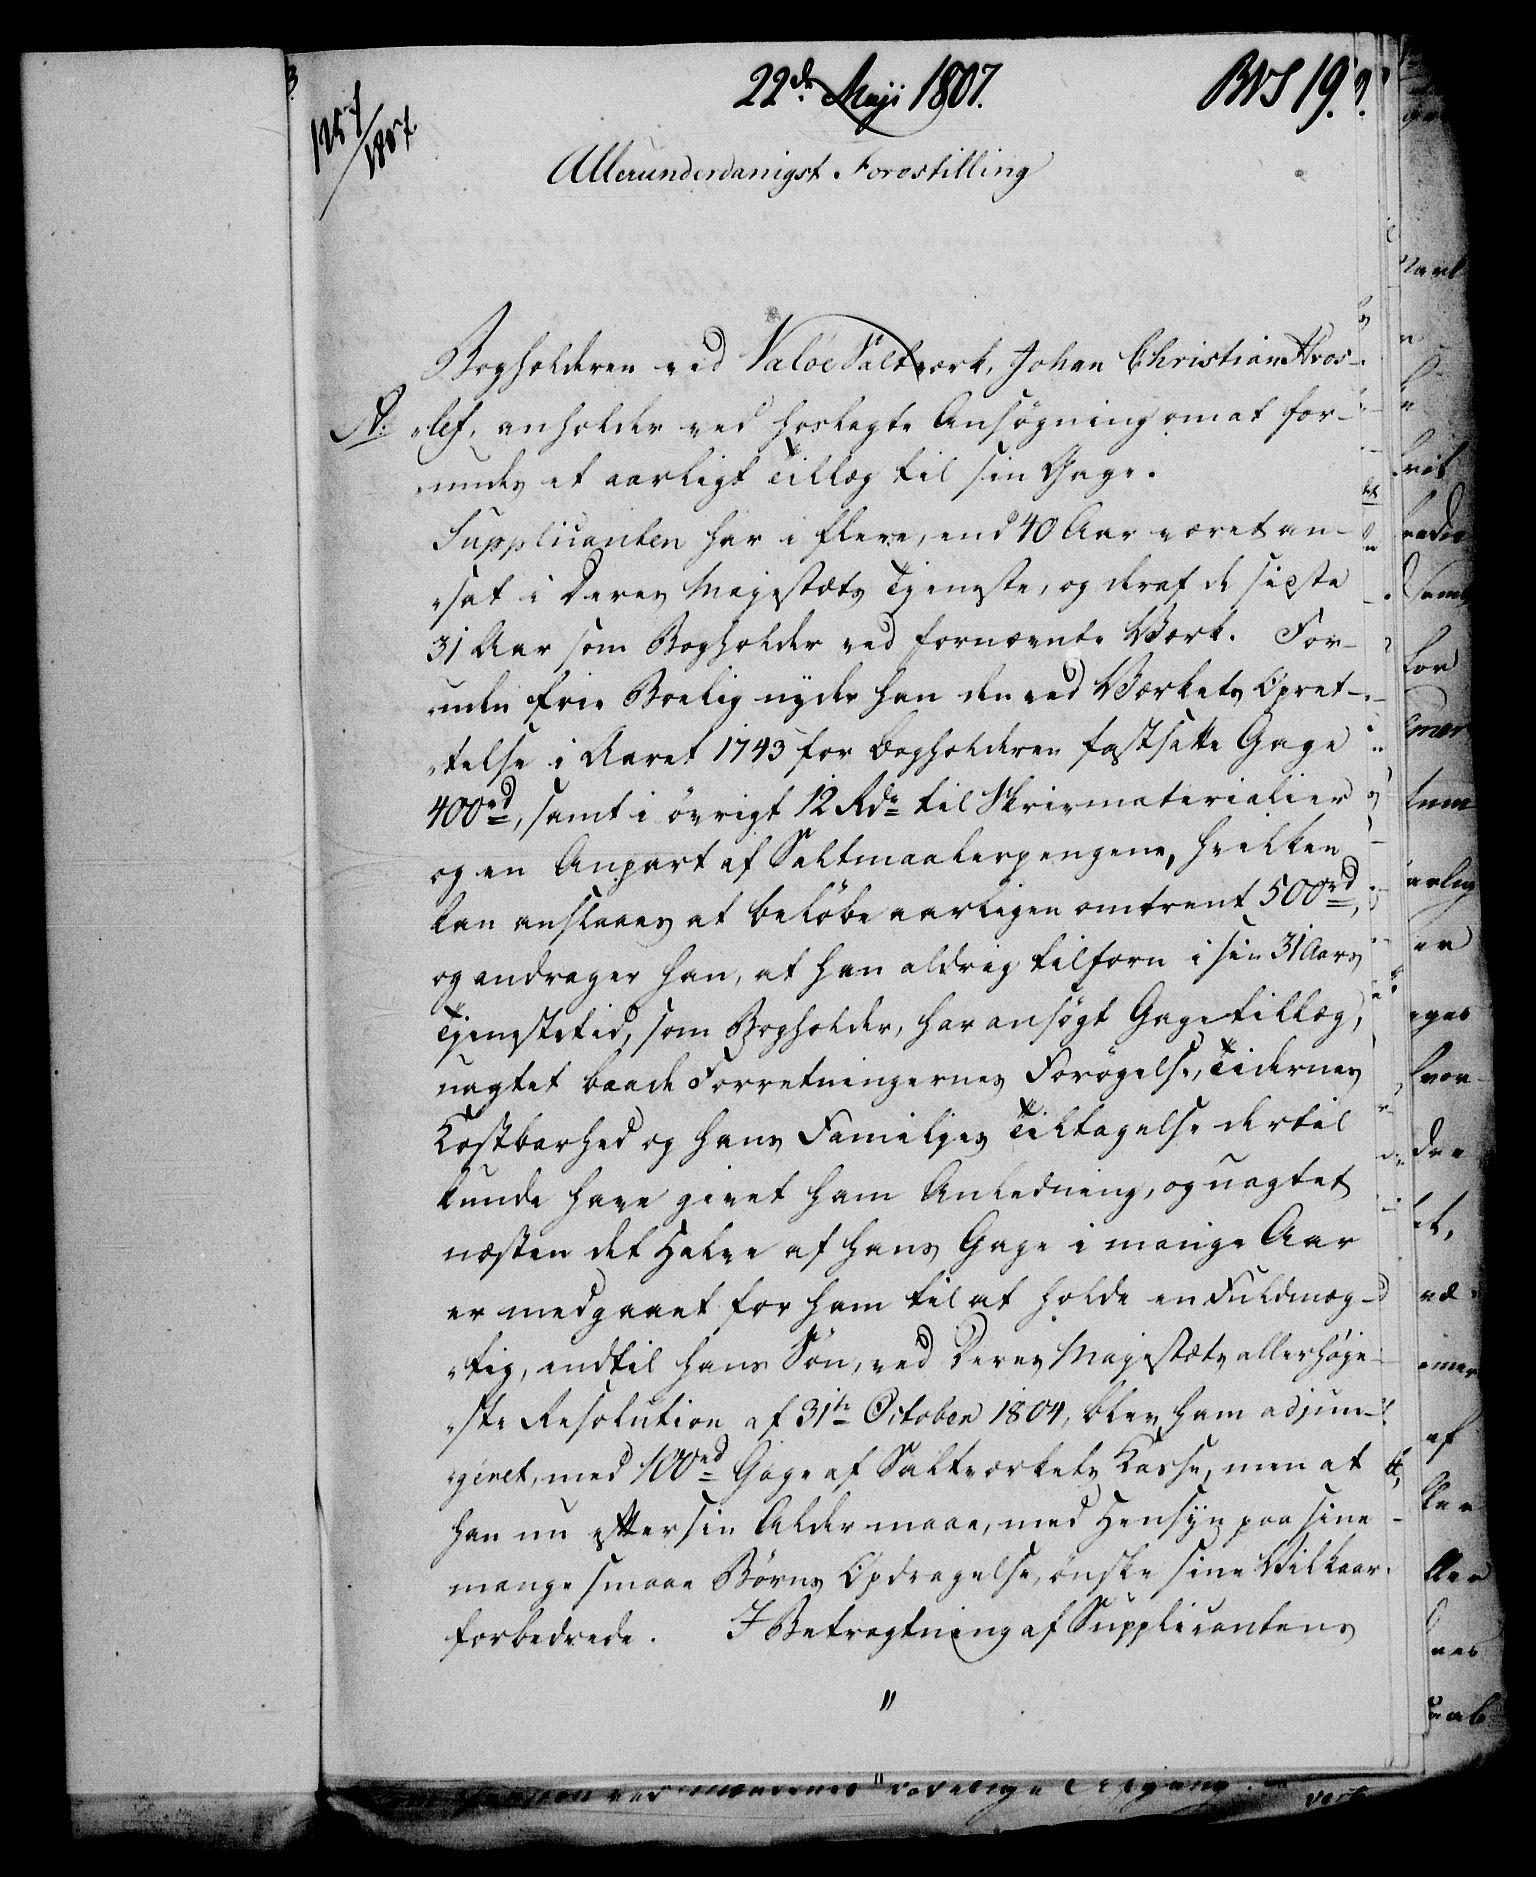 22de Maji 1807.
BVS 19.
1257/1807.
Allerunderdanigst Forestilling
Bogholderen ved Valöe Saltværk, Johan Christian Aros-
A. "lef, anholder ved hoslagte Ansøgning om at for-
"undes et aarligt Tillæg til sin Gage.
Supplicanten har i flere, end 40 Aar været an-
"sat i Deres Majestæts Tjeneste, og deraf de sidste
31 Aar som Bogholder ved fornævnte Værk. For-
"uden frie Boelig nyder han den ved Værkets Opret-
"telse i Aaret 1743 for Bogholderen fastsatte Gage
400rd, samt i øvrigt 12 Rdr til Skrivmaterialier
og en Anpart af Saltmaalerpengene, hvilken
kan anslaaes at beløbe aarligen omtrent 500rd,
og andrager han, at han aldrig tilforn i sin 31 Aars
Tjenestetid, som Bogholder, har ansøgt Gagetillæg,
uagtet baade Forretningernes Forøgelse, Tidernes
Kostbarhed og hans Familjes Tiltagelse dertil
kunde have givet ham Anledning, og uagtet
næsten det Halve af hans Gage i mange Aar
er medgaaet for ham til at holde en Fuldmæg-
"tig, indtil hans Søn, ved Deres Majestæts allerhøje-
"ste Resolution af 31te October 1804, blev ham adjun-
"geret, med 100rd Gage af Saltværkets Kasse, men at
han nu efter sin Alder maae, med Hensyn paa sine
mange smaae Børns Opdragelse, ønske sine Vilkaar
forbedrede. I Betragtning af Supplicantens
"